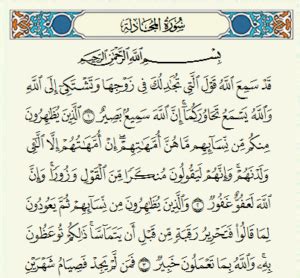 سُورَةُ المُجَادلة
بِسْمِ اللَّهِ الرَّحْمَٰنِ الرَّحِيمِ
قَدْ سَمِعَ اللَّهُ قَوْلَ الَّتِي تُجَٰدِلُكَ فِي زَوْجِهَا وَتَشْتَكِي إِلَى اللَّهِ
وَاللَّهُ يَسْمَعُ تَحَاوُرَكُمَا إِنَّ اللَّهَ سَمِيعٌ بَصِيرٌ ١ الَّذِينَ يُظَٰهِرُونَ
مِنكُم مِّن نِّسَآئِهِم مَّا هُنَّ أُمَّهَٰتِهِمْ إِنْ أُمَّهَٰتُهُمْ إِلَّا الَّٰٓـِٔي
وَلَدْنَهُمْ وَإِنَّهُمْ لَيَقُولُونَ مُنكَرًا مِّنَ الْقَوْلِ وَزُورًا وَإِنَّ
اللَّهَ لَعَفُوٌّ غَفُورٌ ٢ وَالَّذِينَ يُظَٰهِرُونَ مِن نِّسَآئِهِمْ ثُمَّ يَعُودُونَ
لِمَا قَالُوا فَتَحْرِيرُ رَقَبَةٍ مِّن قَبْلِ أَن يَتَمَآسَّا ذَٰلِكُمْ تُوعَظُونَ
بِهِ وَاللَّهُ بِمَا تَعْمَلُونَ خَبِيرٌ ٣ فَمَن لَّمْ يَجِدْ فَصِيَامُ شَهْرَيْنِ